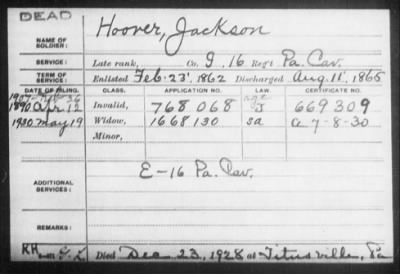 DEAD
NAME OF SOLDIER: Hoover, Jackson
SERVICE: Late rank, Co. G. 16 Reg't Pa. Cav.
TERM OF SERVICE: Enlisted Feb. 23, 1862 Discharged Aug. 11, 1865
DATE OF FILING. CLASS. APPLICATION NO. LAW. CERTIFICATE NO.
1890 Apr. 12 Invalid, 768068 J 669309
1930 May 19 Widow, 1668130 sa a 7-8-30
Minor,
ADDITIONAL SERVICES: E-16 Pa. Cav.
REMARKS:
Died Dec. 23, 1928 at Titusville, Pa